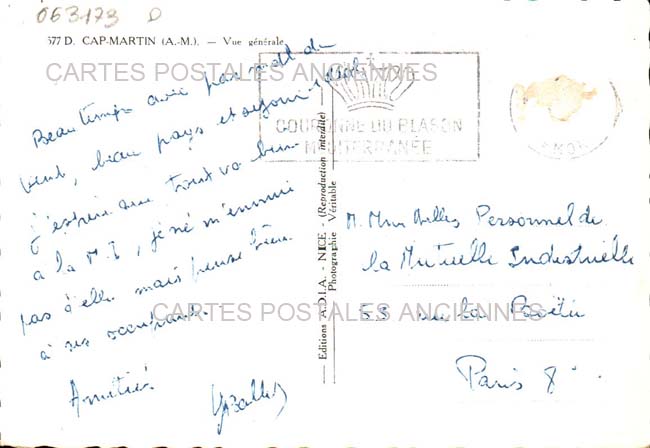 063173 D
577 D. CAP-MARTIN (A.-M.). — Vue générale.
CARTES POSTALES ANCIENNES
Beau temps avec pas mal de
vent, beau pays et séjour idéal
j'espère que tout va bien
à la M.I, je ne m'ennuie
pas d'elle mais pense bien
à ses
Amitiés
MENTON
COURONNE DU BLASON
MEDITERRANÉE
Editions A.D.I.A. - NICE - (Reproduction interdite)
Photographie Véritable
M. Mme Melles Personnel de
la Mutuelle Industrielle
CARTES POSTALES ANCIENNES
53 rue la Boëtie
Paris 8